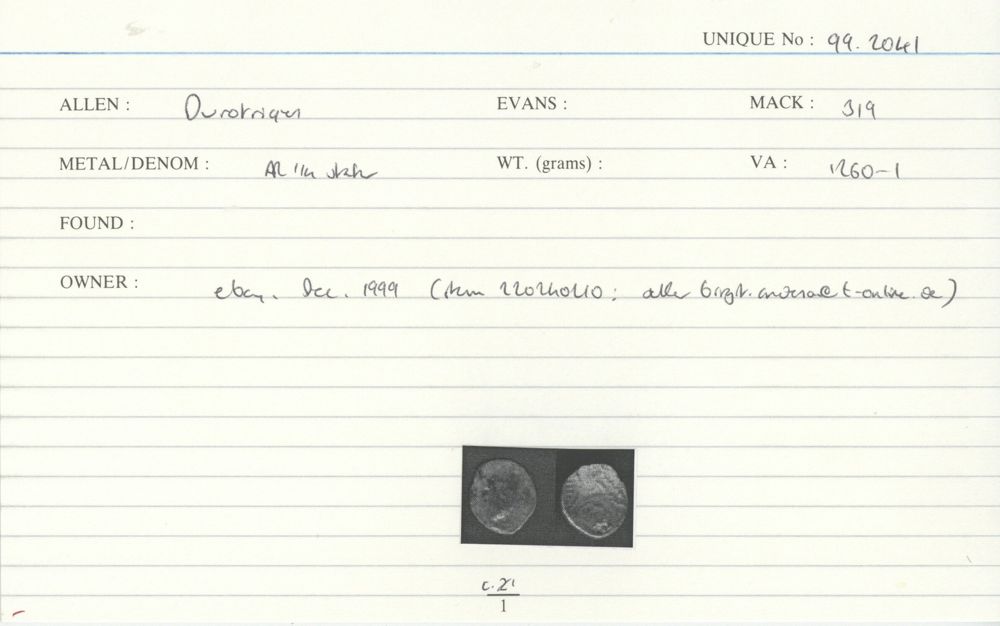 UNIQUE No : 99.2041
ALLEN : Durotriges EVANS : MACK : 319
METAL/DENOM : AR 1/4 stater WT. (grams) : VA : 1260-1
FOUND :
OWNER : ebay. Dec. 1999 (item 220240210 : t-online.de)
c. 2
1